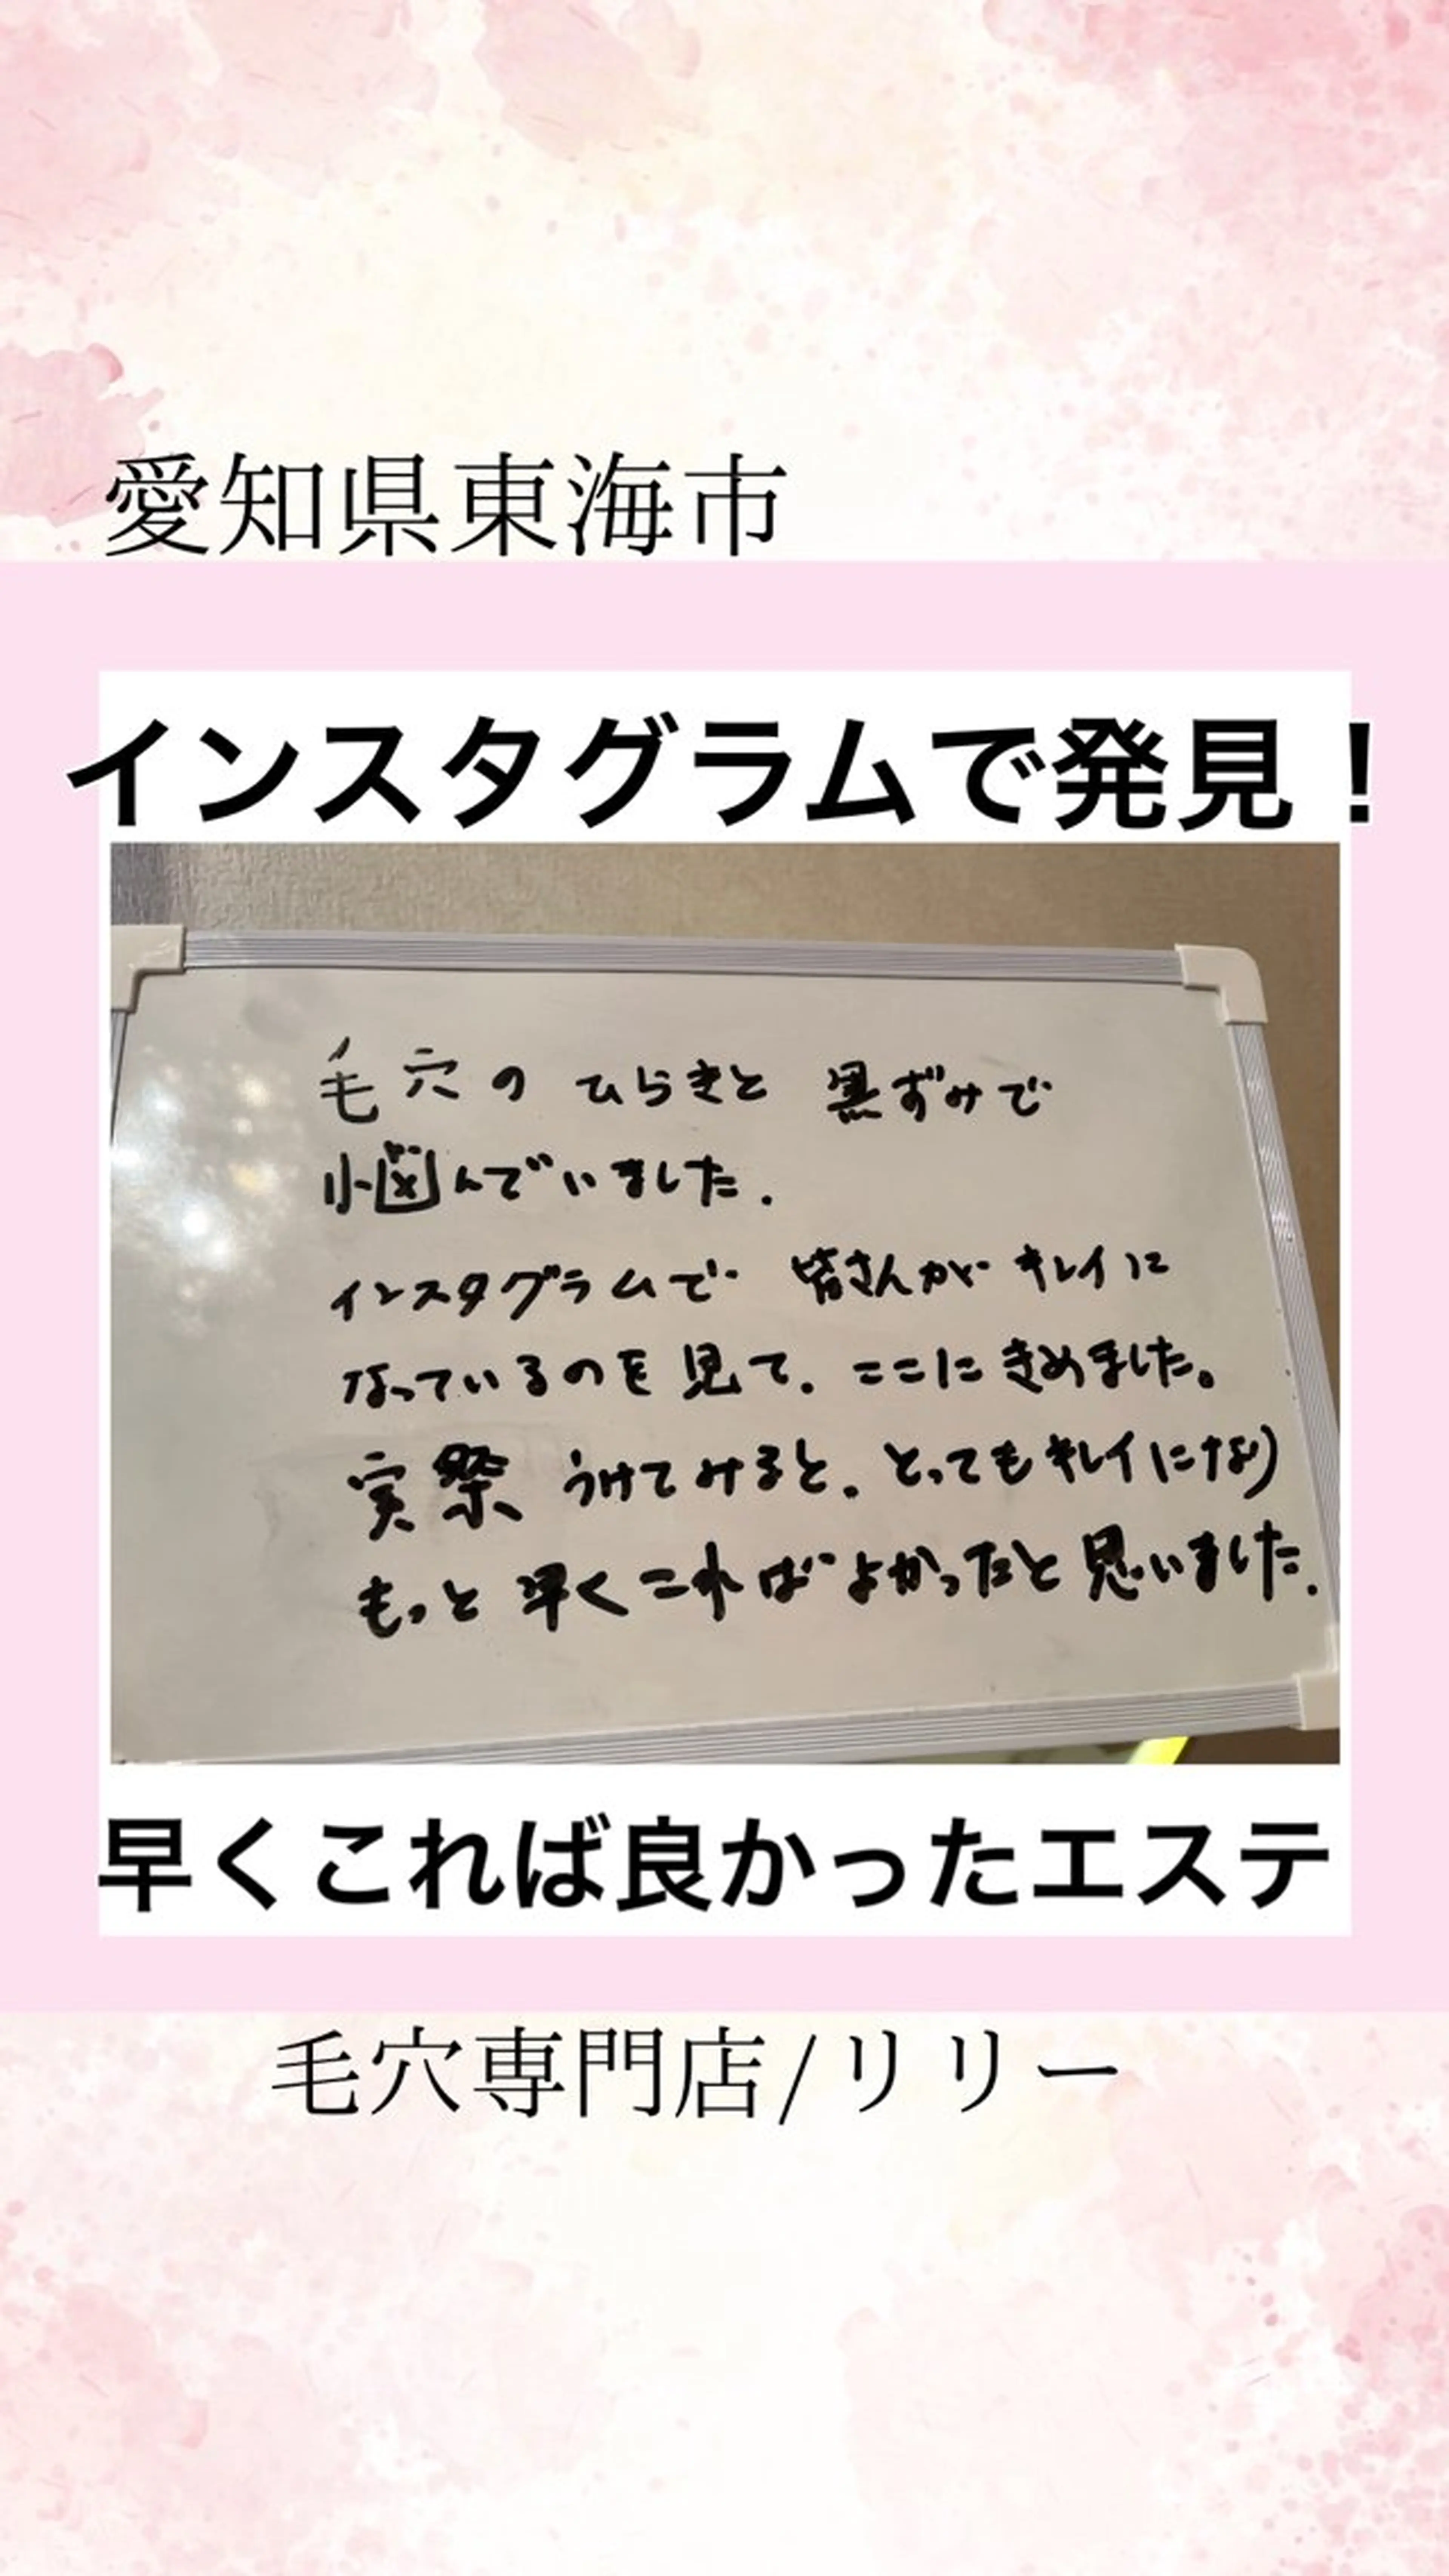 愛知県東海市
インスタグラムで発見！
毛穴の ひらきと 黒ずみで
悩んでいました.
インスタグラムで 皆さんが キレイに
なっているのを見て. ここにきめました。
実祭 うけてみると. とってもキレイになり
もっと早くこればよかったと思いました.
早くこれば良かったエステ
毛穴専門店/リリー